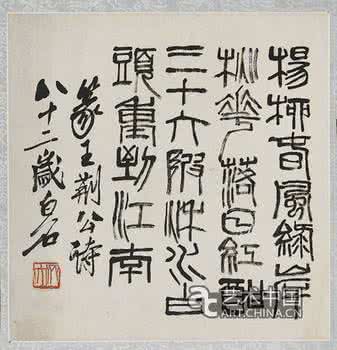 楊柳春風綠岸
桃花落日紅酣
三十六陂水白
頭重到江南
篆王荊公詩
八十二歲白石
艺术中国
ART.CHINA.CN